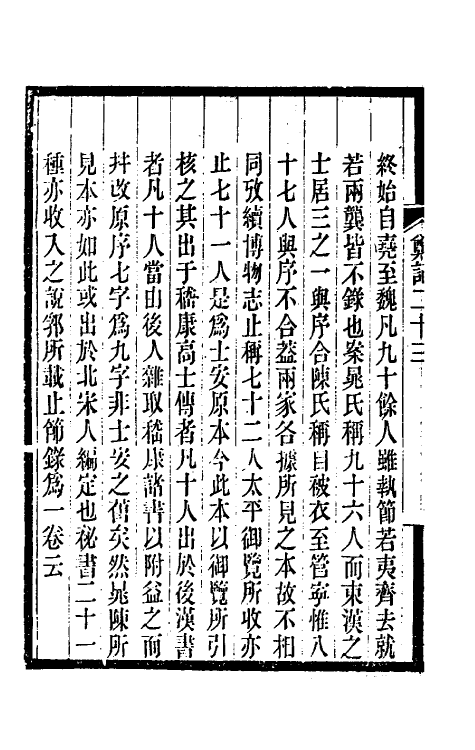 終始自堯至魏凡九十餘人雖執節若夷齊去就
若兩龔皆不錄也案晁氏稱九十六人而東漢之
士居三之一與序合陳氏稱自被衣至管寧惟八
十七人與序不合蓋兩家各據所見之本故不相
同攷續博物志止稱七十二人太平御覽所收亦
止七十一人是爲士安原本今此本以御覽所引
核之其出于嵇康高士傳者凡十人出於後漢書
者凡十人當由後人雜取嵇康諸書以附益之而
幷改原序七字爲九字非士安之舊矣然晁陳所
見本亦如此或出於北宋人編定也秘書二十一
種亦收入之說郛所載止節錄爲一卷云
鄭記二十三